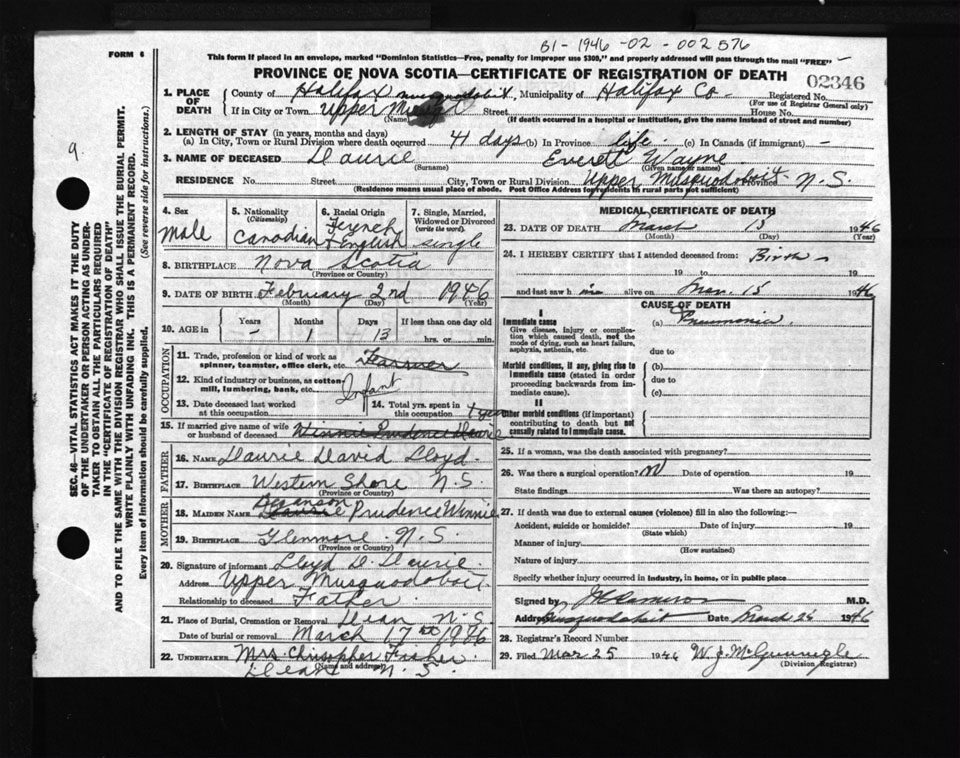 B1-1946-02-002576
FORM 6
This form if placed in an envelope, marked "Dominion Statistics—Free, penalty for improper use $300," and properly addressed will pass through the mail "FREE"
PROVINCE OF NOVA SCOTIA—CERTIFICATE OF REGISTRATION OF DEATH
02346
1. PLACE OF DEATH County of Halifax Musquodoboit, Municipality of Halifax Co. Registered No.
(For use of Registrar General only)
If in City or Town Upper Street House No.
(Name) (If death occurred in a hospital or institution, give the name instead of street and number)
2. LENGTH OF STAY (in years, months and days)
(a) In City, Town or Rural Division where death occurred 41 days (b) In Province life (c) In Canada (if immigrant) —
3. NAME OF DECEASED Daurie Everett Wayne
(Surname) (Given name or names)
RESIDENCE No. Street City, Town or Rural Division Upper Musquodoboit Province N.S.
(Residence means usual place of abode. Post Office Address for residents in rural parts not sufficient)
4. Sex Male
5. Nationality (Citizenship) Canadian
6. Racial Origin French & English
7. Single, Married, Widowed or Divorced (write the word) single
8. BIRTHPLACE Nova Scotia
(Province or Country)
9. DATE OF BIRTH February 2nd 1946
(Month) (Day) (Year)
10. AGE in Years – Months 1 Days 13 If less than one day old hrs. or min.
OCCUPATION
11. Trade, profession or kind of work as spinner, teamster, office clerk, etc.
12. Kind of industry or business, as cotton mill, lumbering, bank, etc. Infant
13. Date deceased last worked at this occupation
14. Total yrs. spent in this occupation
15. If married give name of wife or husband of deceased Winnie Prudence Daurie
FATHER
16. NAME Daurie David Lloyd
17. BIRTHPLACE Western Shore N.S.
(Province or Country)
MOTHER
18. MAIDEN NAME Daurie Prudence Winnie
19. BIRTHPLACE Glenmore N.S.
(Province or Country)
20. Signature of informant Lloyd D. Daurie
Address Upper Musquodoboit
Relationship to deceased Father
21. Place of Burial, Cremation or Removal Dean N.S.
Date of burial or removal March 17th 1946
22. UNDERTAKER Mrs. Christopher Fisher
(Name and address)
Dean N.S.
MEDICAL CERTIFICATE OF DEATH
23. DATE OF DEATH March 15 1946
(Month) (Day) (Year)
24. I HEREBY CERTIFY that I attended deceased from: Birth –
19 to 19
and last saw h im alive on Mar. 15 1946
CAUSE OF DEATH
I
Immediate cause
Give disease, injury or complication which caused death, not the mode of dying, such as heart failure, asphyxia, asthenia, etc.
(a) Pneumonia
due to
Morbid conditions, if any, giving rise to immediate cause (stated in order proceeding backwards from immediate cause).
(b)
due to
(c)
II
Other morbid conditions (if important) contributing to death but not causally related to immediate cause.
25. If a woman, was the death associated with pregnancy?
26. Was there a surgical operation? Date of operation 19
State findings Was there an autopsy?
27. If death was due to external causes (violence) fill in also the following:—
Accident, suicide or homicide? Date of injury 19
(State which)
Manner of injury
(How sustained)
Nature of injury
Specify whether injury occurred in industry, in home, or in public place
Signed by M.D.
Address Musquodoboit Date March 1946
28. Registrar's Record Number
29. Filed Mar 25 1946
(Division Registrar)
9.
SEC. 46—VITAL STATISTICS ACT MAKES IT THE DUTY
OF THE UNDERTAKER OR PERSON ACTING AS UNDER-
TAKER TO OBTAIN ALL THE PARTICULARS REQUIRED
IN THE "CERTIFICATE OF REGISTRATION OF DEATH"
AND TO FILE THE SAME WITH THE DIVISION REGISTRAR WHO SHALL ISSUE THE BURIAL PERMIT.
WRITE PLAINLY WITH UNFADING INK. THIS IS A PERMANENT RECORD.
Every item of information should be carefully supplied. (See reverse side for instructions.)